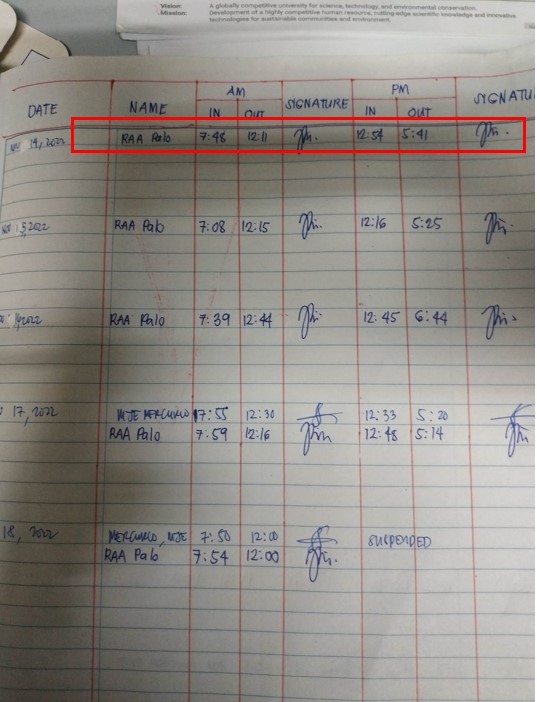 Vision: A globally competitive university for science, technology, and environmental conservation.
Mission: Development of a highly competitive human resource, cutting-edge scientific knowledge and innovative
technologies for sustainable communities and environment.
AM PM
DATE NAME IN OUT SIGNATURE IN OUT SIGNATU
14, 2022 RAA Palo 7:48 12:11 12:54 5:41
2022 RAA Palo 7:08 12:15 12:16 5:25
2022 RAA Palo 7:39 12:44 12:45 6:44
17, 2022 MJE MERCURIO 7:55 12:30 12:33 5:20
RAA Palo 7:59 12:16 12:48 5:14
18, 2022 MERCURIO, MJE 7:50 12:00 SUSPENDED
RAA Palo 7:54 12:00